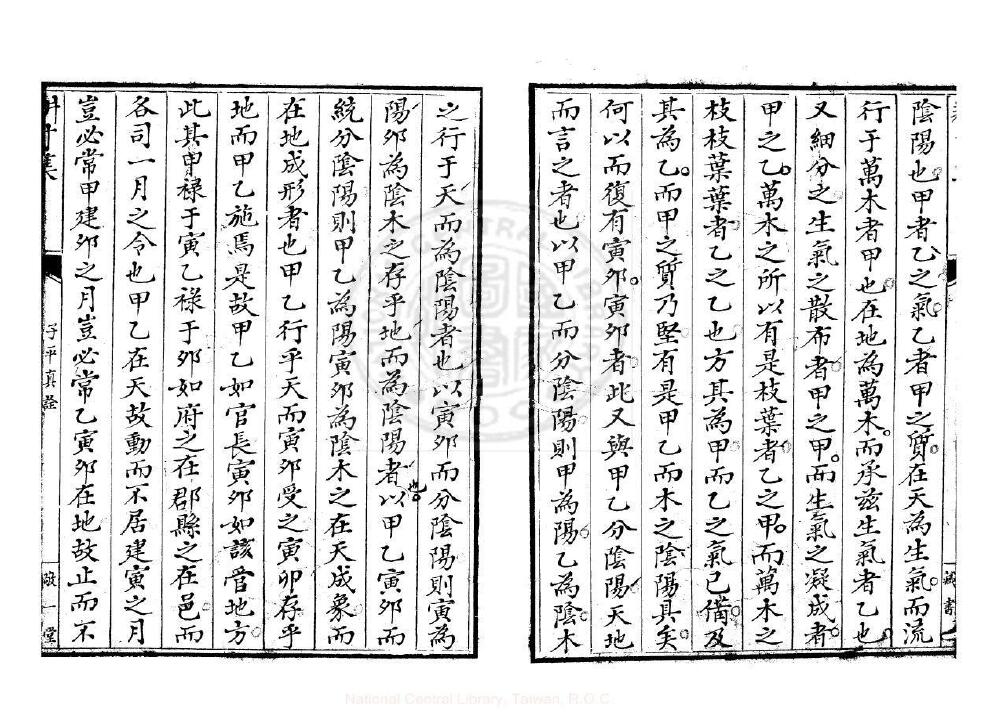 陰陽也甲者乙之氣乙者甲之質在天為生氣而流
行于萬木者甲也在地為萬木而承茲生氣者乙也
又細分之生氣之散布者甲之甲而生氣之凝成者
甲之乙萬木之所以有是枝葉者乙之甲而萬木之
枝枝葉葉者乙之乙也方其為甲而乙之氣已備及
其為乙而甲之質乃堅有是甲乙而木之陰陽具矣
何以而復有寅卯寅卯者此又與甲乙分陰陽天地
而言之者也以甲乙而分陰陽則甲為陽乙為陰木
之行于天而為陰陽者也以寅卯而分陰陽則寅為
陽卯為陰木之存乎地而為陰陽者也以甲乙寅卯而
統分陰陽則甲乙為陽寅卯為陰木之在天成象而
在地成形者也甲乙行乎天而寅卯受之寅卯存乎
地而甲乙施焉是故甲乙如官長寅卯如該管地方
此其甲祿于寅乙祿于卯如府之在郡縣之在邑而
各司一月之令也甲乙在天故動而不居建寅之月
豈必常甲建卯之月豈必常乙寅卯在地故止而不
子平真詮
敬一堂
藏書
National Central Library, Taiwan, R.O.C.